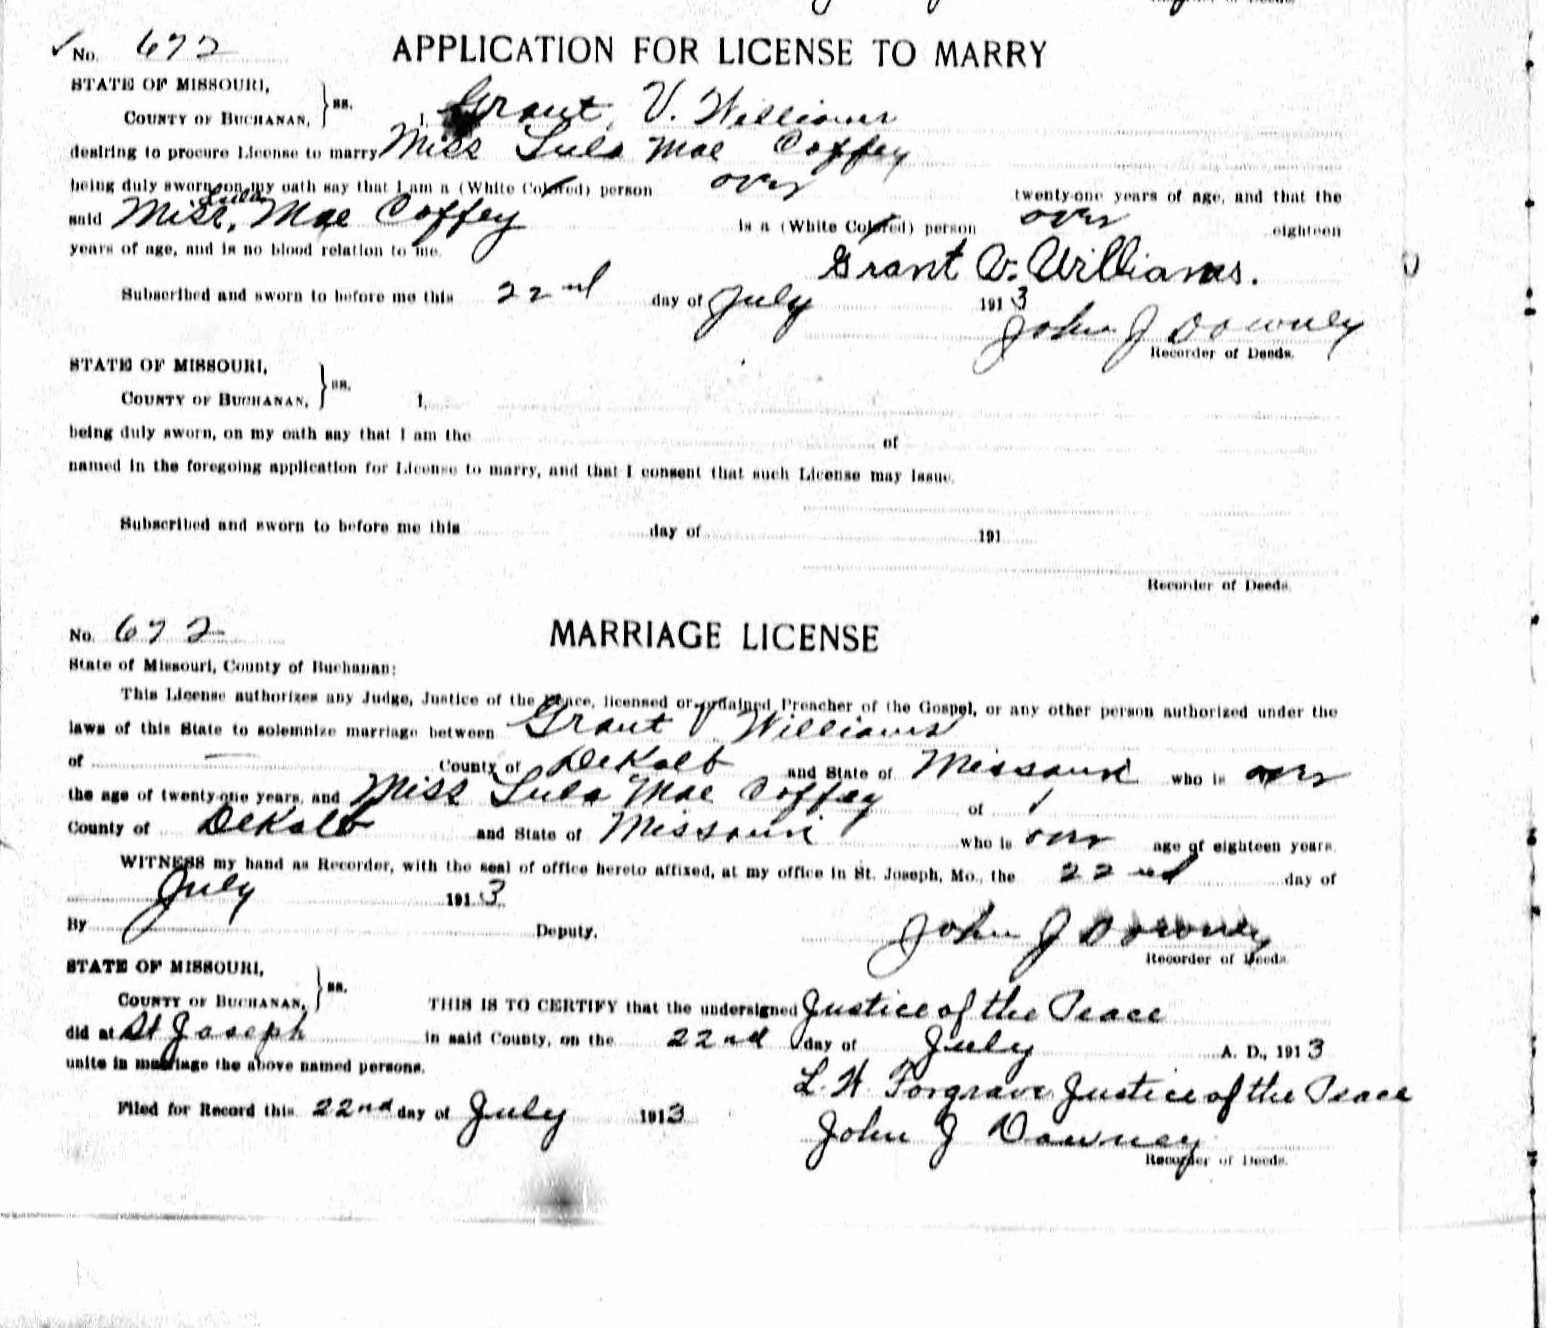 ✓ No. 672 APPLICATION FOR LICENSE TO MARRY
STATE OF MISSOURI,
COUNTY OF BUCHANAN, } ss. I, Grant, V. Williams
desiring to procure License to marry Miss Lula Mae Coffey
being duly sworn, on my oath say that I am a (White Colored) person over twenty-one years of age, and that the
said Miss, Lula Mae Coffey is a (White Colored) person over eighteen
years of age, and is no blood relation to me.
Grant V. Williams.
Subscribed and sworn to before me this 22nd day of July 1913
John J Downey
Recorder of Deeds.
STATE OF MISSOURI,
COUNTY OF BUCHANAN, } ss. I,
being duly sworn, on my oath say that I am the of
named in the foregoing application for License to marry, and that I consent that such License may issue.
Subscribed and sworn to before me this day of 191
Recorder of Deeds.
No. 672 MARRIAGE LICENSE
State of Missouri, County of Buchanan:
This License authorizes any Judge, Justice of the Peace, licensed or ordained Preacher of the Gospel, or any other person authorized under the
laws of this State to solemnize marriage between Grant V Williams
of — County of DeKalb and State of Missouri who is over
the age of twenty-one years, and Miss Lula Mae Coffey of
County of DeKalb and State of Missouri who is over age of eighteen years.
WITNESS my hand as Recorder, with the seal of office hereto affixed, at my office in St. Joseph, Mo., the 22nd day of
July 1913.
By Deputy. John J Downey
Recorder of Deeds.
STATE OF MISSOURI,
COUNTY OF BUCHANAN, } ss. THIS IS TO CERTIFY that the undersigned Justice of the Peace
did at St Joseph in said County, on the 22nd day of July A. D., 1913
unite in marriage the above named persons.
L. H Forgrave Justice of the Peace
Filed for Record this 22nd day of July 1913
John J Downey
Recorder of Deeds.